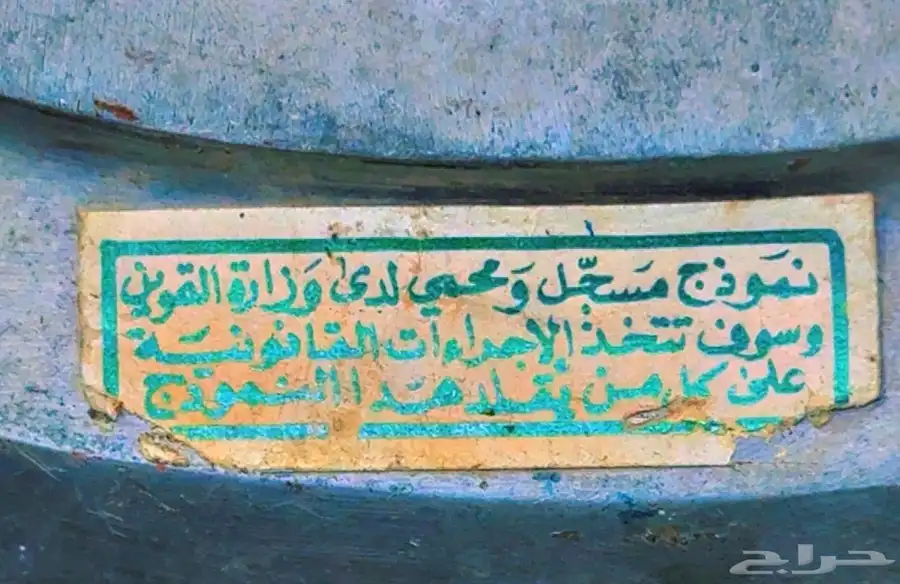 نموذج مسجّل ومحمي لدى وزارة التموين
وسوف تتخذ الإجراءات القانونية
على كل من يقلد هذا النموذج
حراج